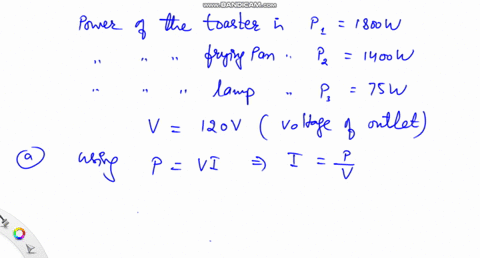 WWW.BANDICAM.COM
Power of the toaster is P₁ = 1800W
" " " frying pan " P₂ = 1400W
" " " lamp " P₃ = 75W
V = 120V ( voltage of outlet)
(a) using P = VI ⇒ I = P/V